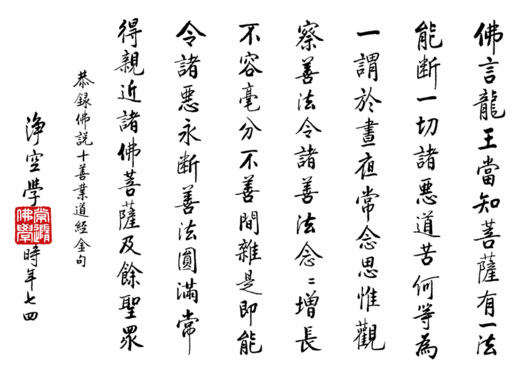 佛言龍王當知菩薩有一法
能断一切諸惡道苦何等為
一謂於晝夜常念思惟觀
察善法令諸善法念〻增長
不容毫分不善間雜是即能
令諸惡永断善法圓滿常
得親近諸佛菩薩及餘聖眾
恭錄佛說十善業道經金句
淨空學
時年七四